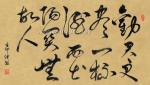 劝君更
尽一杯
酒西出
阳关无
故人